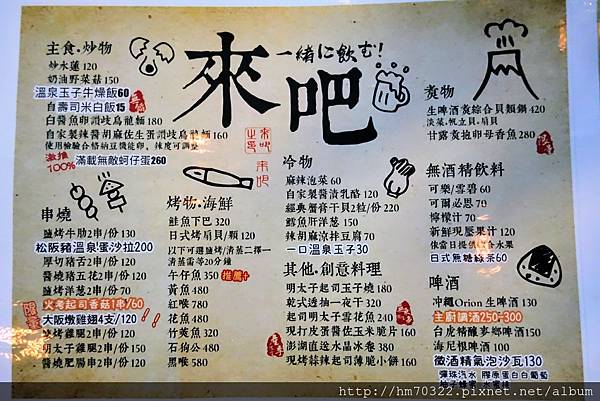 來吧
一緒に飲む!
主食.炒物
炒水蓮 120
奶油野菜菇 150
溫泉玉子牛燥飯60
白壽司米白飯15
白醬魚卵讚岐烏龍麵 180
自家製辣醬胡麻佐生蛋讚岐烏龍麵 160
使用檢驗合格納豆機能卵,辣度可調整
激推100%
滿載無敵蚵仔蛋260
串燒
鹽烤牛肋2串/份 130
松阪豬溫泉蛋沙拉200
厚切豬舌2串/份 120
醬燒豬五花2串/份 120
鹽烤洋蔥2串/份 70
火考起司香菇1串/60
大阪燉雞翅4支/120
鹽烤雞腿2串/份 130
明太子雞腿2串/份 150
醬燒肥腸串2串/份 120
烤物.海鮮
鮭魚下巴 320
日式烤肩貝/顆 120
以下可選鹽烤/清蒸二擇一
清蒸需等20分鐘
午仔魚 350 推薦+
黃魚 480
紅喉 780
花魚 480
竹筴魚 320
石狗公 480
黑喉 580
冷物
麻辣泡菜 60
自家製醬漬乳酪 120
經典蟹膏干貝2粒/份 220
鱈魚肝洋蔥 150
辣胡麻涼拌豆腐 70
一口溫泉玉子30
其他.創意料理
明太子起司玉子燒 180
乾式透抽一夜干 320
起司明太子雲花魚 240
現打皮蛋醬佐玉米脆片 160
澎湖直送水晶冰卷 380
現烤蒜辣起司薄脆小餅 160
煮物
生啤酒煮綜合貝類鍋 420
淡菜.帆立貝.扇貝
甘露煮抱卵母香魚 280
無酒精飲料
可樂/雪碧 60
可爾必思 70
檸檬汁 70
新鮮現壓果汁 120
依當日提供綜合水果
日式無糖綠茶60
啤酒
沖繩Orion生啤酒 130
主廚調酒250-300
台虎精釀爹鄉啤酒 150
海尼根啤酒 100
微酒精氣泡沙瓦130
彈珠汽水 膠原蛋白白葡萄
柚子蜂蜜 水蜜桃
http://hm70322.pixnet.net/album